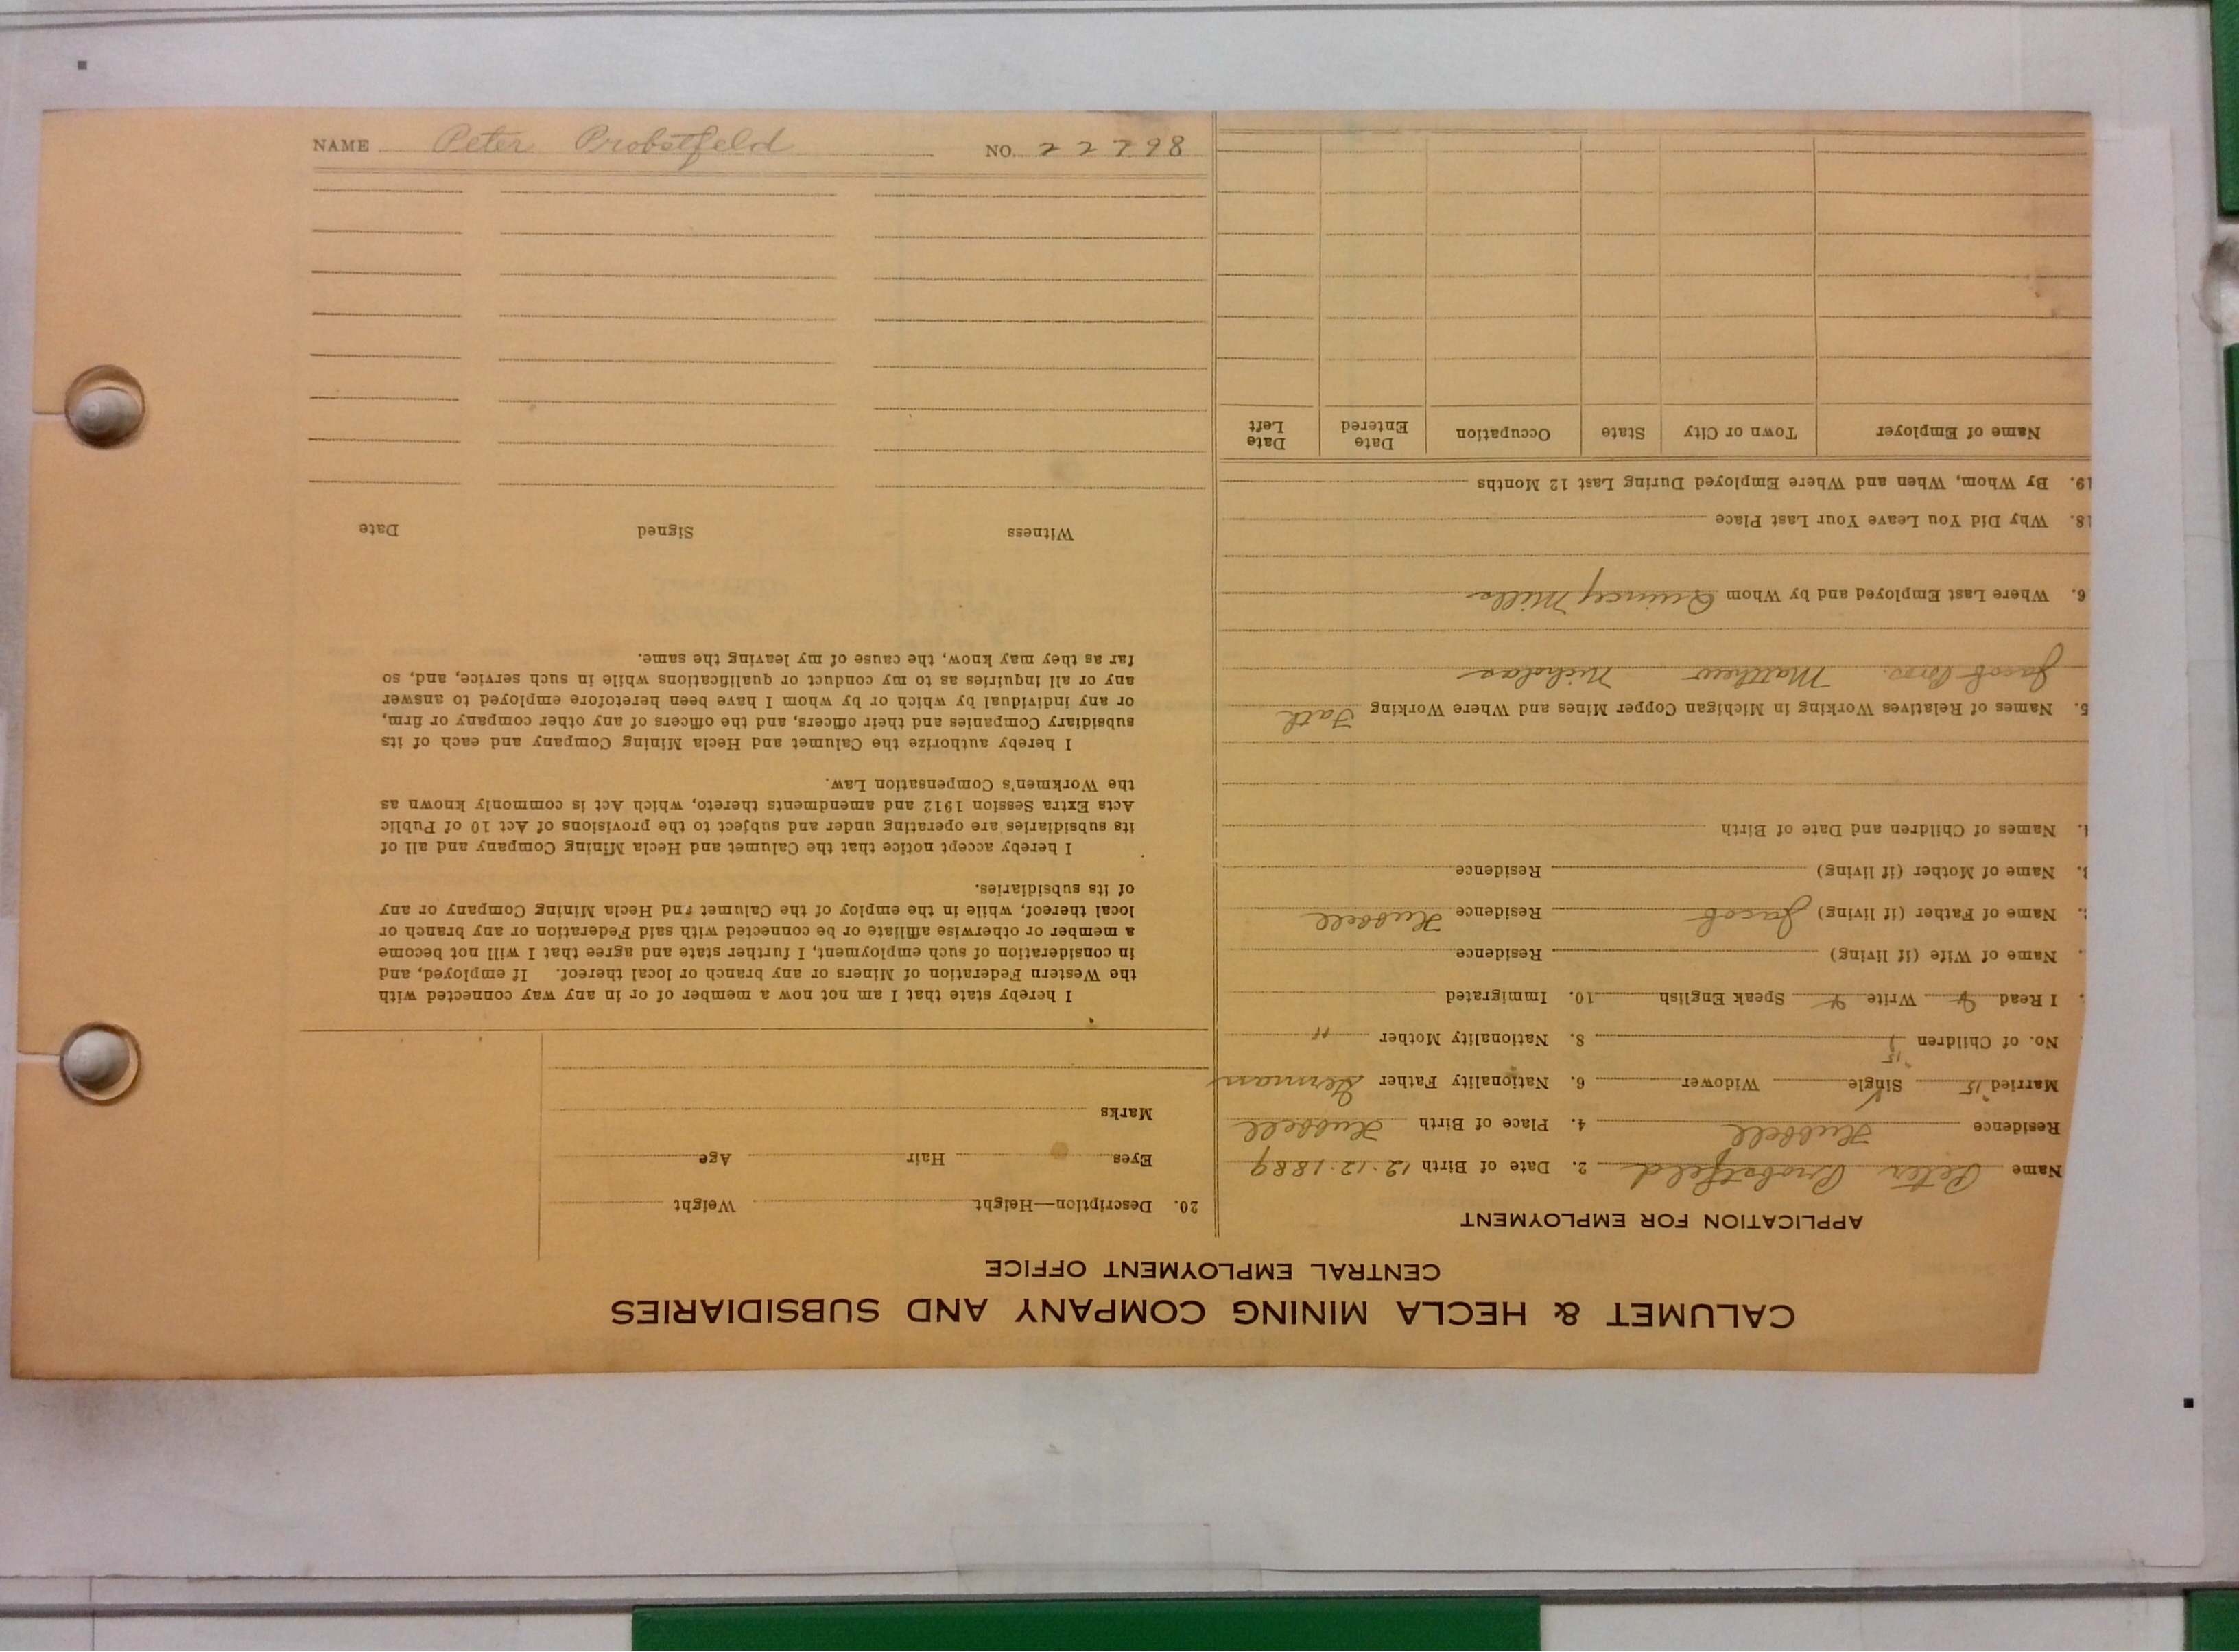 CALUMET & HECLA MINING COMPANY AND SUBSIDIARIES
CENTRAL EMPLOYMENT OFFICE
APPLICATION FOR EMPLOYMENT
Name Peter Probstfeld 2. Date of Birth 12.12.1889
Residence Hubbell 4. Place of Birth Hubbell
Married "15 Single Widower 6. Nationality Father German
"15
No. of Children 1 8. Nationality Mother "
I Read Write Speak English 10. Immigrated
Name of Wife (if living) Residence
Name of Father (if living) Jacob Residence Hubbell
Name of Mother (if living) Residence
Names of Children and Date of Birth
5. Names of Relatives Working in Michigan Copper Mines and Where Working Fath
Jacob Bros. Matthew Nicholas
6. Where Last Employed and by Whom Quincy Mills
18. Why Did You Leave Your Last Place
19. By Whom, When and Where Employed During Last 12 Months
Name of Employer Town or City State Occupation Date Entered Date Left
20. Description—Height Weight
Eyes Hair Age
Marks
I hereby state that I am not now a member of or in any way connected with
the Western Federation of Miners or any branch or local thereof. If employed, and
in consideration of such employment, I further state and agree that I will not become
a member or otherwise affiliate or be connected with said Federation or any branch or
local thereof, while in the employ of the Calumet and Hecla Mining Company or any
of its subsidiaries.
I hereby accept notice that the Calumet and Hecla Mining Company and all of
its subsidiaries are operating under and subject to the provisions of Act 10 of Public
Acts Extra Session 1912 and amendments thereto, which Act is commonly known as
the Workmen's Compensation Law.
I hereby authorize the Calumet and Hecla Mining Company and each of its
subsidiary Companies and their officers, and the officers of any other company or firm,
or any individual by which or by whom I have been heretofore employed to answer
any or all inquiries as to my conduct or qualifications while in such service, and, so
far as they may know, the cause of my leaving the same.
Witness Signed Date
NAME Peter Probstfeld NO. 22798